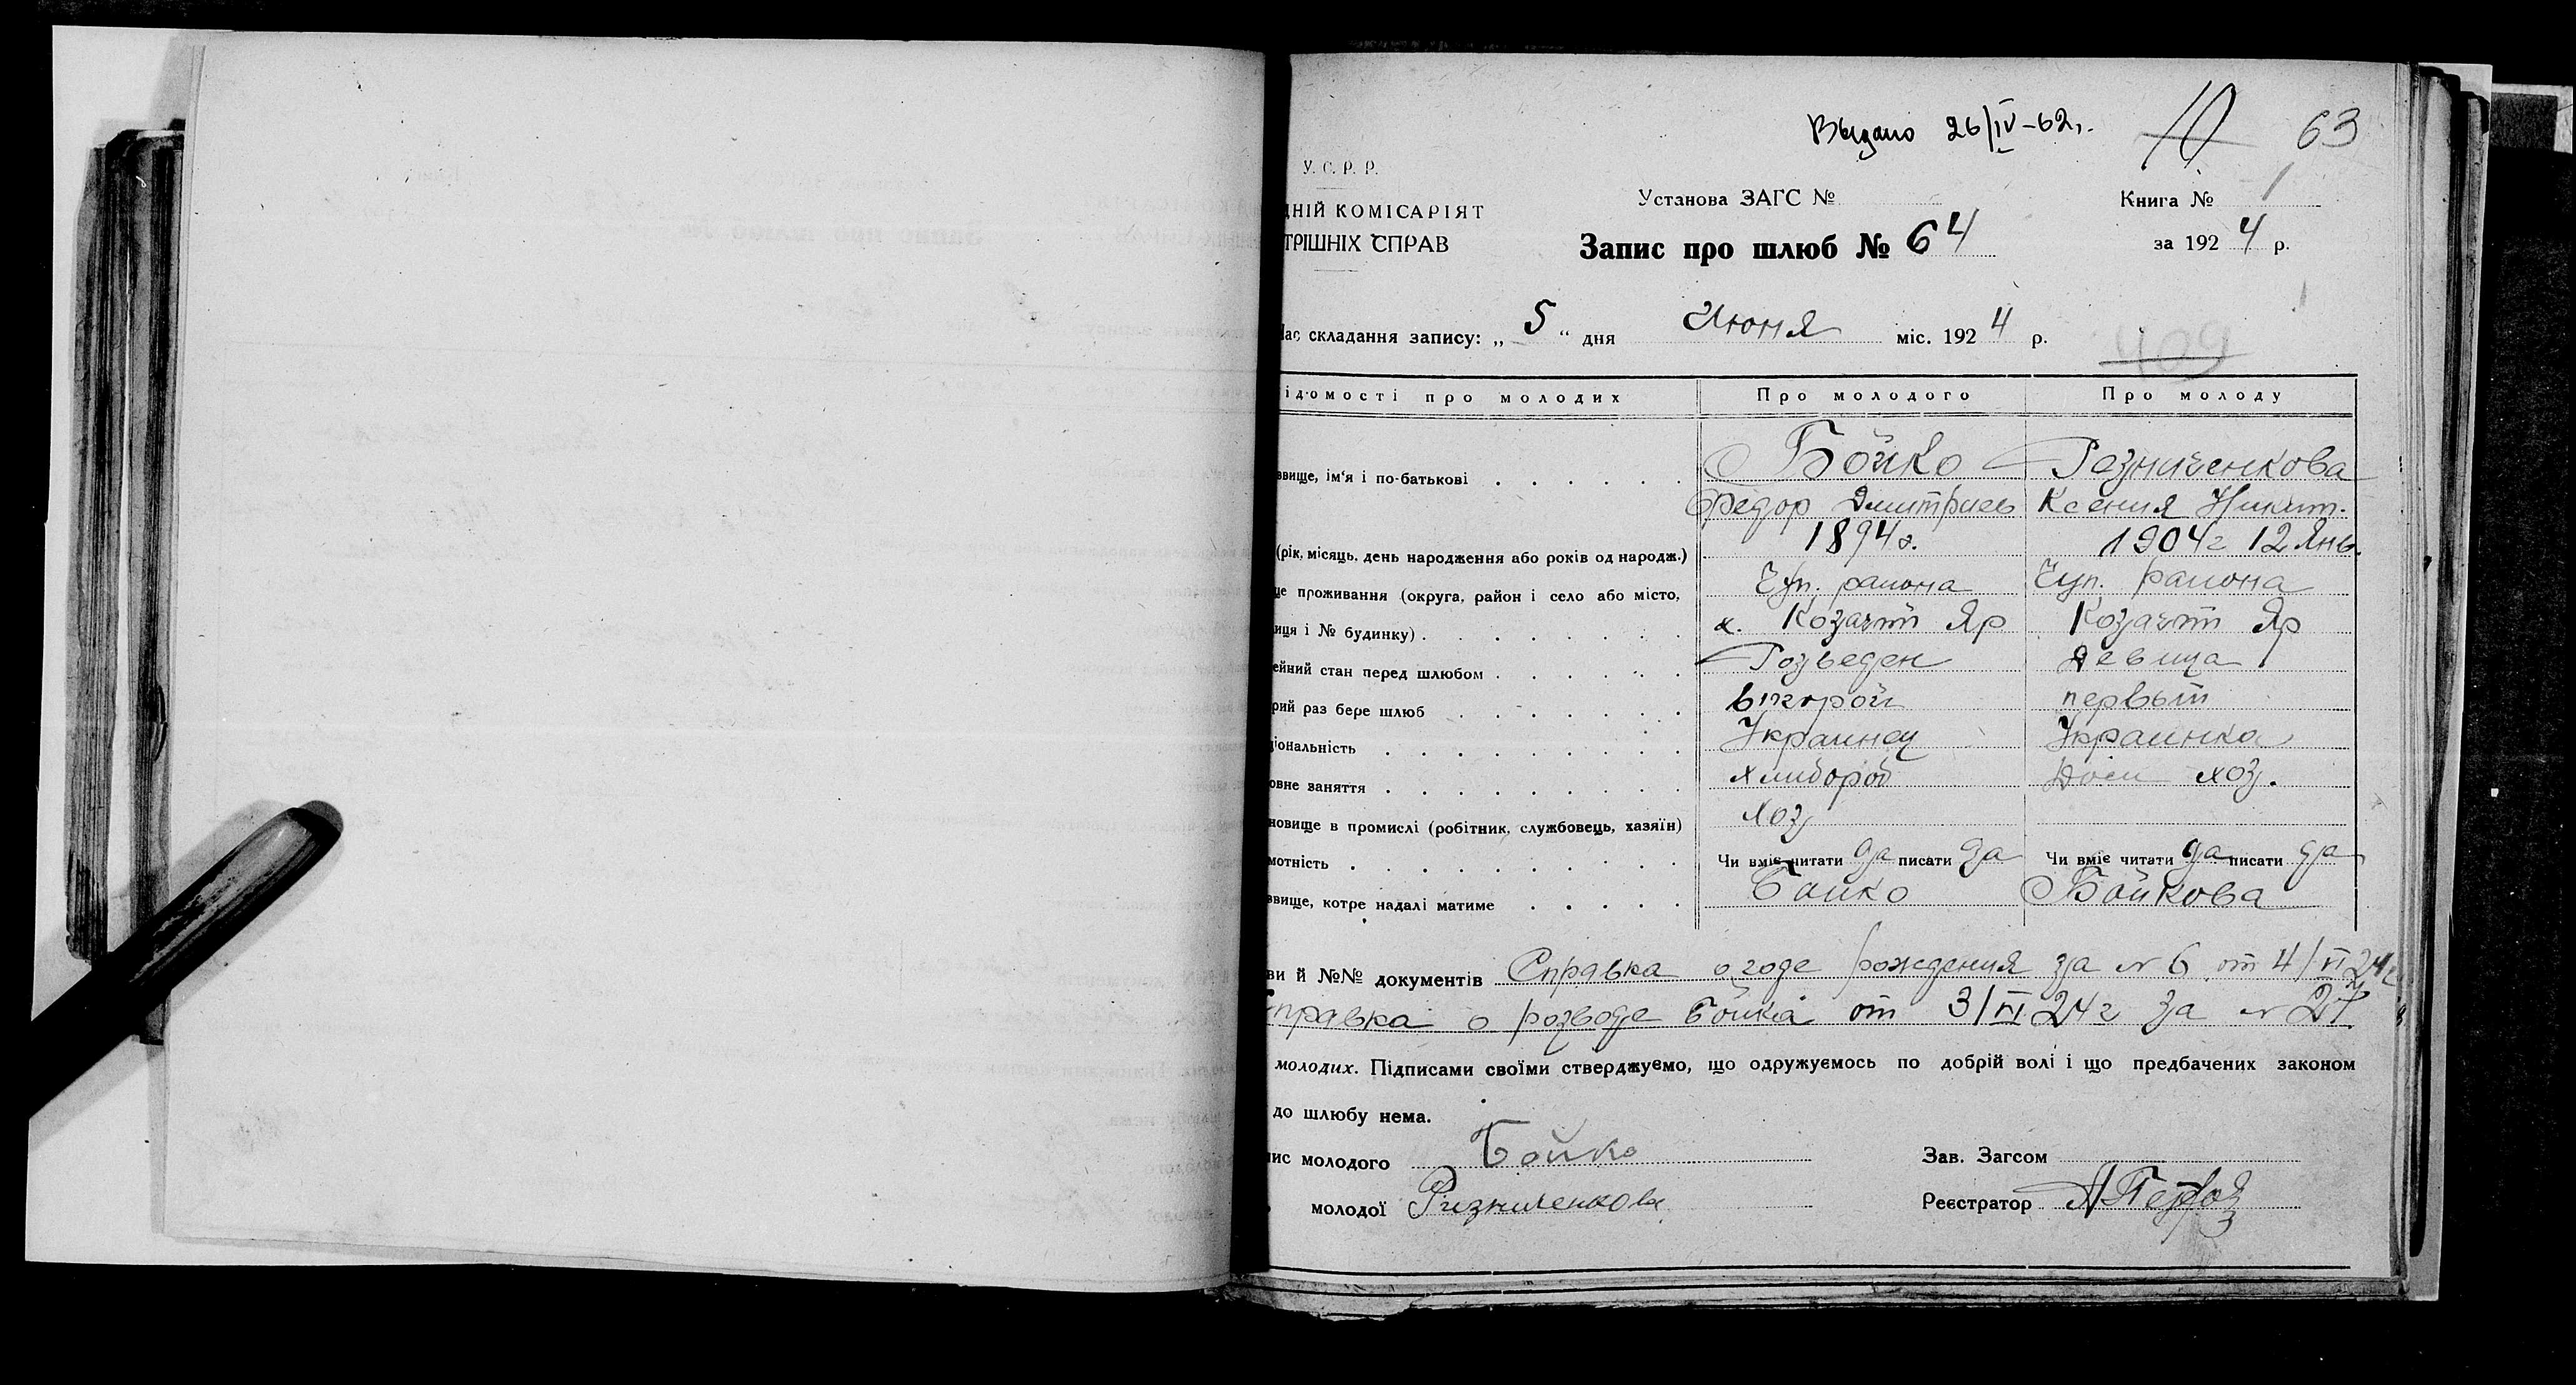 Выдано 26/IV-62г.
10 63
У. С. Р. Р.
ДНІЙ КОМІСАРІЯТ
ТРІШНІХ СПРАВ
Установа ЗАГС №
Книга № 1
Запис про шлюб № 64
за 1924 р.
Час складання запису: „ 5 “ дня Июня міс. 1924 р.
409
ідомості про молодих Про молодого Про молоду
Бойко Резниченкова
звище, ім'я і по-батькові
Федор Дмитриев Ксения Никит.
(рік, місяць, день народження або років од народж.) 1894г. 1904г 12 Янв.
це проживання (округа, район і село або місто, Чуп. раиона Чуп. раиона
иця і № будинку) х. Козачий Яр Козачий Яр
ейний стан перед шлюбом Розведен девица
рий раз бере шлюб второй первый
ціональність Украинец Украинка
овне заняття хлибороб Дом хоз.
новище в промислі (робітник, службовець, хазяїн) хоз
мотність Чи вміє читати да писати да Чи вміє читати да писати да
звище, котре надалі матиме Бойко Бойкова
ви й №№ документів Справка о годе рождения за № 6 от 4/VI 24г
Справка о розводе Бойка от 3/VI 24г за № 27
молодих. Підписами своїми стверджуємо, що одружуємось по добрій волі і що предбачених законом
до шлюбу нема.
пис молодого Бойко Зав. Загсом
молодої Ризниченкова Реєстратор